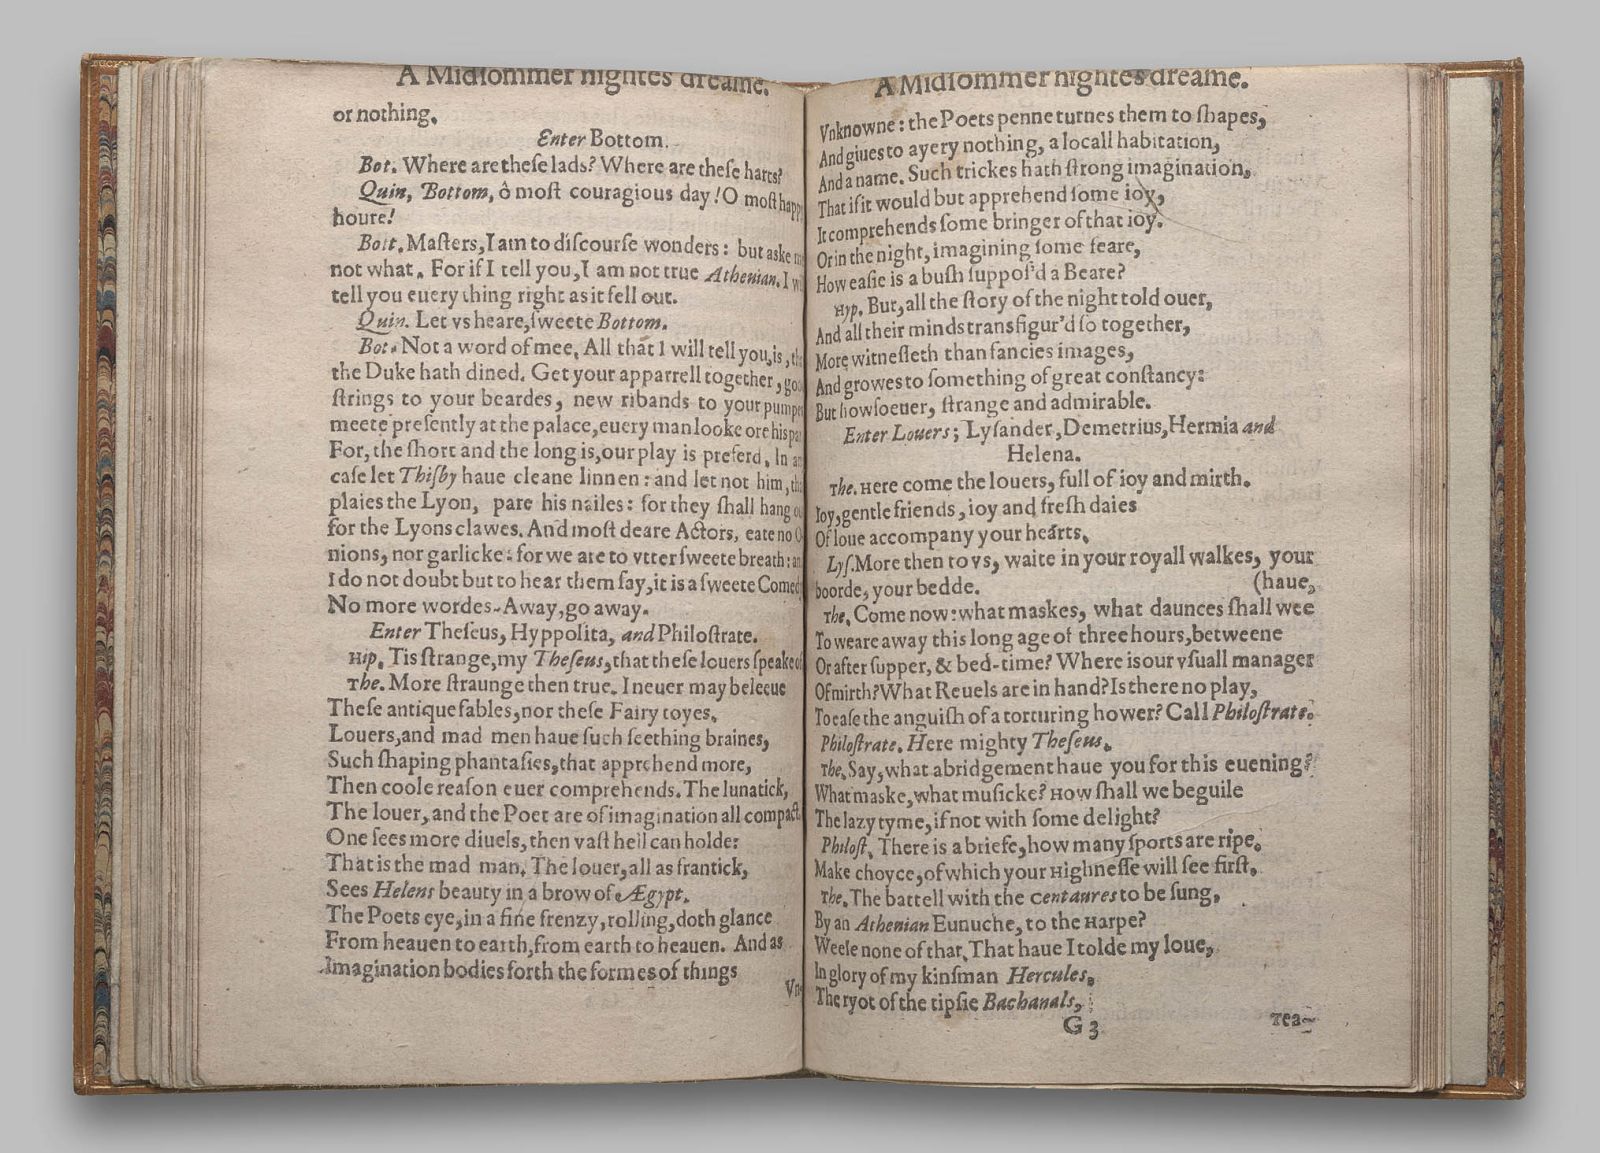 A Midsommer nightes dreame.
or nothing.
Enter Bottom.
Bot. Where are theſe lads? Where are theſe harts?
Quin, Bottom, ô moſt couragious day! O moſt happy
houre!
Bott. Maſters, I am to diſcourſe wonders: but aske me
not what. For if I tell you, I am not true Athenian. I
tell you euery thing right as it fell out.
Quin. Let vs heare, ſweete Bottom.
Bot. Not a word of mee. All that I will tell you, is,
the Duke hath dined. Get your apparrell together,
ſtrings to your beardes, new ribands to your pumpes
meete preſently at the palace, euery man looke ore his
For, the ſhort and the long is, our play is preferd. In
caſe let Thiſby haue cleane linnen: and let not him,
plaies the Lyon, pare his nailes: for they ſhall hang
for the Lyons clawes. And moſt deare Actors, eate no O
nions, nor garlicke: for we are to vtter ſweete breath:
I do not doubt but to hear them ſay, it is a ſweete Comedy
No more wordes. Away, go away.
Enter Theſeus, Hyppolita, and Philoſtrate.
Hip. Tis ſtrange, my Theſeus, that theſe louers ſpeake of
The. More ſtraunge then true. I neuer may beleeue
Theſe antique fables, nor theſe Fairy toyes.
Louers, and mad men haue ſuch ſeething braines,
Such ſhaping phantaſies, that apprehend more,
Then coole reaſon euer comprehends. The lunatick,
The louer, and the Poet are of imagination all compact.
One ſees more diuels, then vaſt hell can holde:
That is the mad man. The louer, all as frantick,
Sees Helens beauty in a brow of Ægypt.
The Poets eye, in a fine frenzy, rolling, doth glance
From heauen to earth, from earth to heauen. And as
Imagination bodies forth the formes of things
Vn-
A Midsommer nightes dreame.
Vnknowne: the Poets penne turnes them to ſhapes,
And giues to ayery nothing, a locall habitation,
And a name. Such trickes hath ſtrong imagination,
That if it would but apprehend ſome ioy,
It comprehends ſome bringer of that ioy.
Or in the night, imagining ſome feare,
How eaſie is a buſh ſuppoſ'd a Beare?
Hyp. But, all the ſtory of the night told ouer,
And all their minds transfigur'd ſo together,
More witneſſeth than fancies images,
And growes to ſomething of great conſtancy:
But howſoeuer, ſtrange and admirable.
Enter Louers; Lyſander, Demetrius, Hermia and
Helena.
The. Here come the louers, full of ioy and mirth.
Ioy, gentle friends, ioy and freſh daies
Of loue accompany your hearts.
Lyſ. More then to vs, waite in your royall walkes, your
boorde, your bedde. (haue,
The. Come now: what maskes, what daunces ſhall wee
To weare away this long age of three hours, betweene
Or after ſupper, & bed-time? Where is our vſuall manager
Of mirth? What Reuels are in hand? Is there no play,
To eaſe the anguiſh of a torturing hower? Call Philoſtrate.
Philoſtrate. Here mighty Theſeus.
The. Say, what abridgement haue you for this euening?
What maske, what muſicke? How ſhall we beguile
The lazy tyme, if not with ſome delight?
Philoſt. There is a briefe, how many ſports are ripe.
Make choyce, of which your Highneſſe will ſee firſt.
The. The battell with the Centaures to be ſung,
By an Athenian Eunuche, to the Harpe?
Weele none of that. That haue I tolde my loue,
In glory of my kinſman Hercules.
The ryot of the tipſie Bachanals,
G 3
Tea-